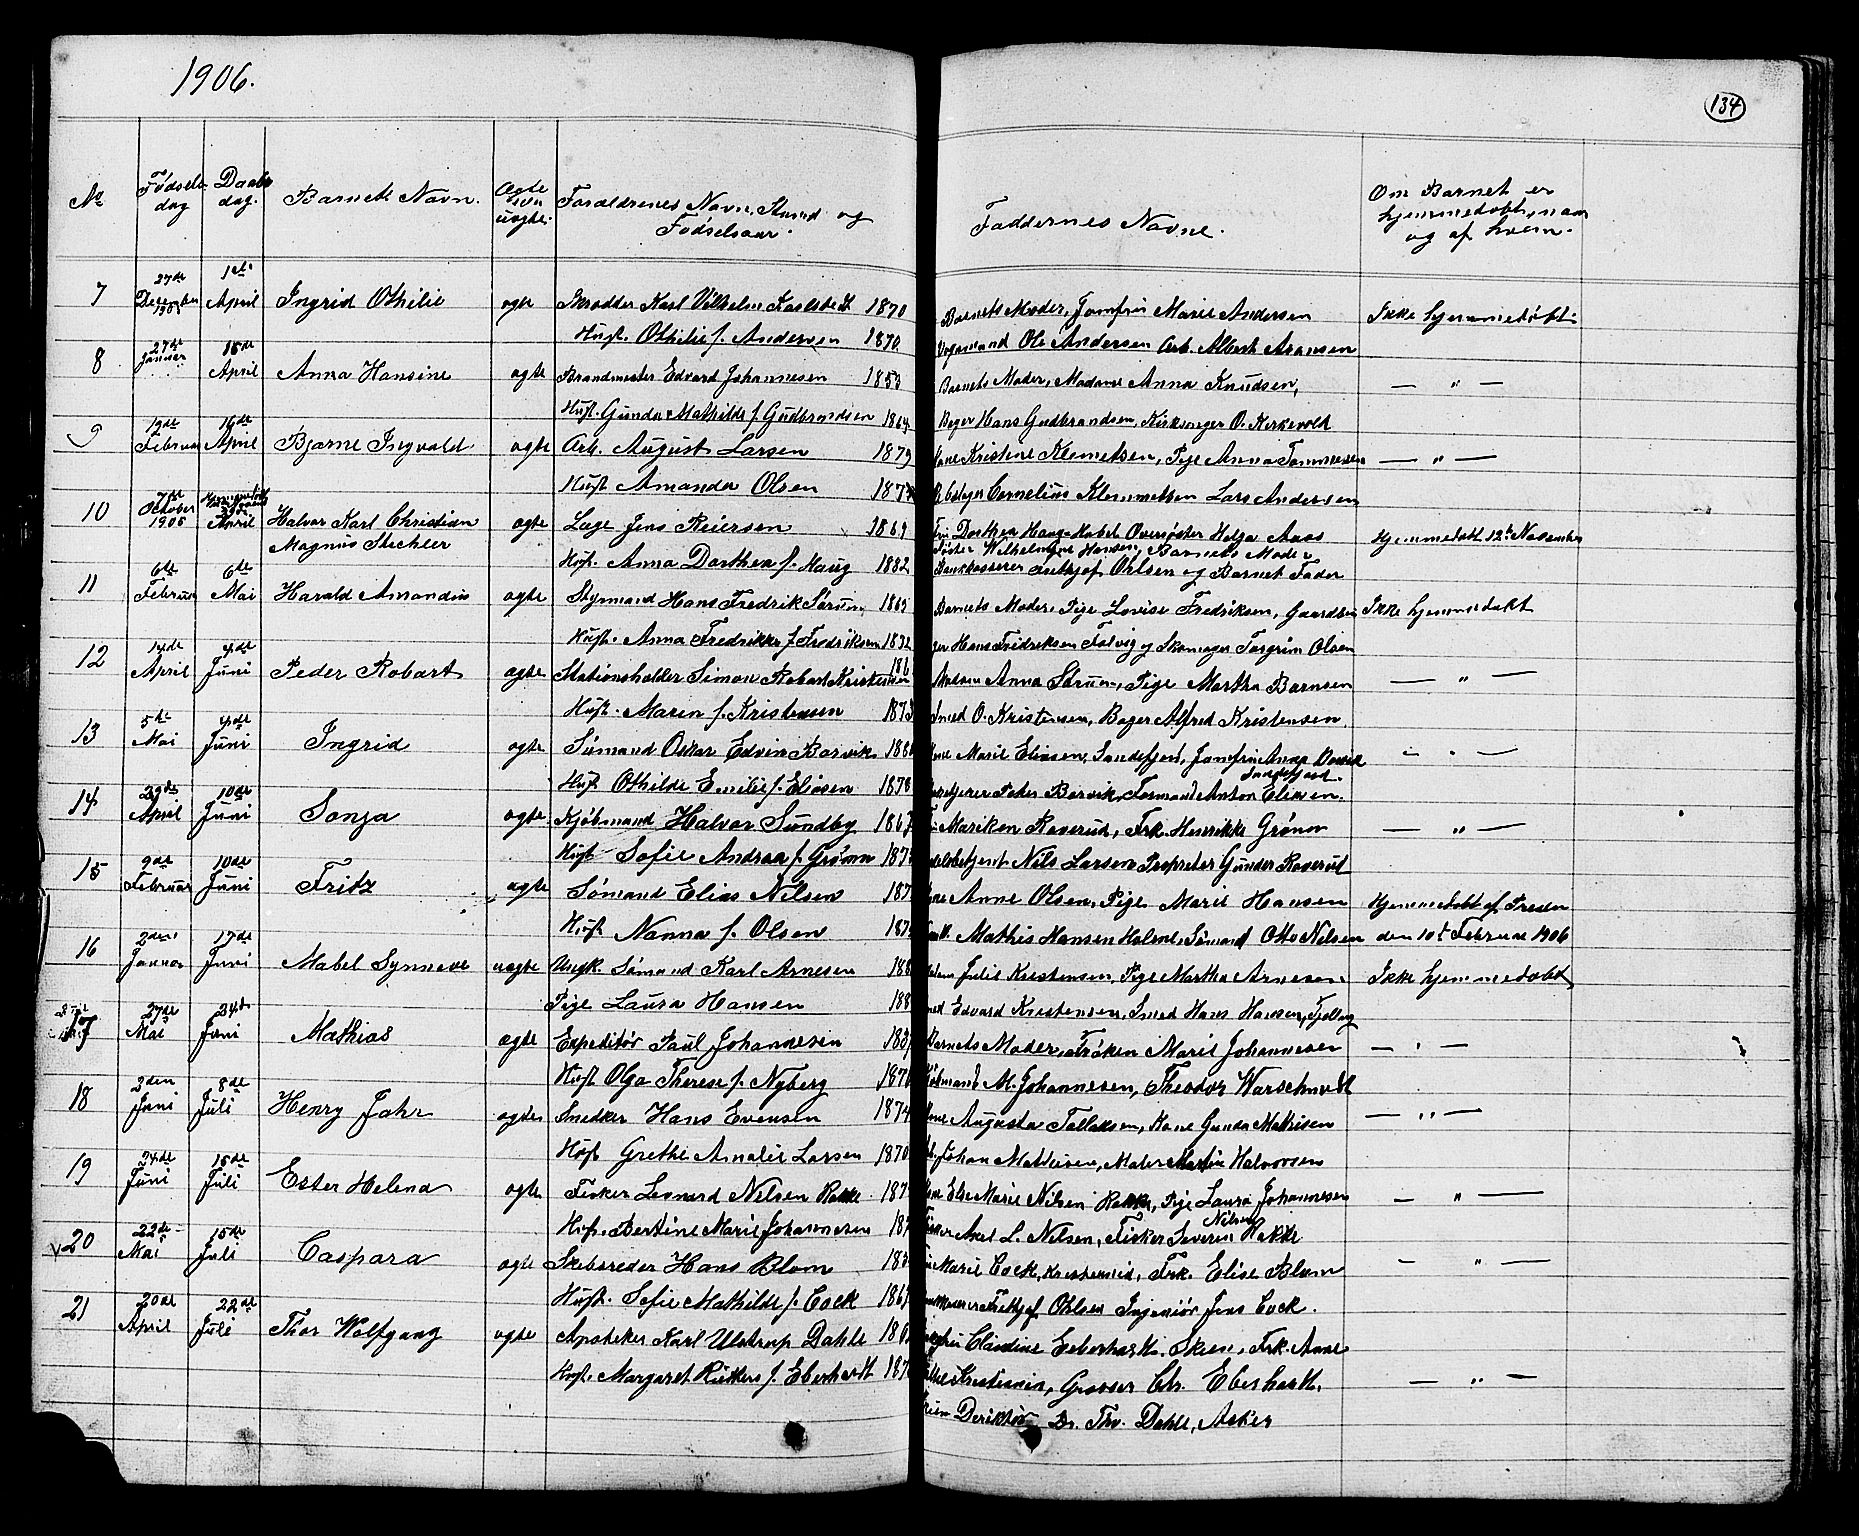 1906.
134
No Fødsels- dag Daabs dag. Barnets Navn. Ægte eller uægte. Forældrenes Navn, Stand og Fødselsaar. Faddernes Navne. Om Barnet er hjemmedøbt, naar og af hvem.
7 27de December 1905 1ste April Ingrid Othilie ægte Skrædder Karl Vilhelm Karlstedt 1870 Barnets Moder, Jomfru Marie Andersen Ikke hjemmedøbt
Hust. Othilie f. Andersen 1870 Ole Andersen Arb. Albert Aronsen
8 27de Januar 15de April Anna Hansine ægte Brandmester Edvard Johannesen 1853 Barnets Moder, Madame Anna Knudsen, — " —
Hust. Gunda Mathilde f. Gudbrandsen 1864 Bager Hans Gudbrandsen, Kirkesanger O. Kirkevold
9 19de Februar 16de April Bjarne Ingvald ægte Arb. August Larsen 1879 Kone Kristene Klemetsen, Pige Anna Tommesen — " —
Hust. Amanda Olsen Cornelius Klemmetsen Lars Andersen
10 7de October 1905 April Halvor Karl Christian ægte Læge Jens Reiersen 1869 Fru Dorthea Haug Oversøster Helga Aass Hjemmedøbt 12te November
Magnus Stechler Søster Wilhelmine Hansen, Barnets Moder
Hust. Anna Dorthea f. Haug 1882 Bankkasserer Ohlsen og Barnet Fader
11 6te Februar 6te Mai Harald Amandus ægte Styrmand Hans Fredrik Sørum 1865 Barnets Moder, Pige Lovise Fredriksen, Gaardbru Ikke hjemmedøbt
Hust. Anna Fredrikke f. Fredriksen Hans Fridreksen Falvig og Skomager Torgrim Olsen
12 14de April 4de Juni Peder Robart ægte Stationsholder Simon Robart Kristensen 186 Madam Anna Sørum, Pige Martha Barnsen — " —
Hust. Maren f. Kristensen 1873 Smed O. Kristensen, Bager Alfred Kristensen.
13 5te Mai 4de Juni Ingrid ægte Sømand Oskar Edvin Barvik 188 Kone Marie Eliasen, Sandefjord, Jomfru Anna Barvik — " —
Sandefjord.
Hust. Othilde Emilie f. Eliasen 1878 Peder Barvik Formand Anton Eliasen.
14 29de April 10de Juni Sonja ægte Kjøbmand Halvor Sundby 1867 Fru Mariken Raverud, Frk. Henrikke Grønn — " —
Hust. Sofie Andrea f. Grønn 187 Nils Larsen Proprietær Gunder Raverud
15 9de Februar 10de Juni Fritz ægte Sømand Elias Nilsen 187 Kone Anne Olsen, Pige Marie Hansen Hjemmedøbt af Presten
Hust. Nanna f. Olsen 187 Mathis Hansen Holme, Sømand Otto Nilsen den 10de Februar 1906
16 2den Januar 17de Juni Mabel Synneve uægte Ungk. Sømand Karl Arnesen 188 Julie Kristensen, Pige Martha Arnesen Ikke hjemmedøbt
Pige Laura Hansen 188 Smed Edvard Kristensen, Smed Hans Hansen, Tjølling
17 27de Mai 24de Juni Mathias ægte Expeditør Paul Johannesen 18 Barnets Moder, Frøken Marie Johannesen — " —
Hust. Olga Therese f. Nyberg 1876 Kjøbmand M. Johannesen, Theodor Warschmidt
18 3den Juni 8de Juli Henry Johr ægte Snedker Hans Evensen 1874 Kone Augusta Tollaksen, Kone Gunda Mathisen — " —
Hust. Grethe Amalie Larsen 1870 Johan Mathisen, Maler Martin Halvorsen
19 24de Juni 15de Juli Ester Helena ægte Fisker Leonard Nilsen Rakke 187 Kone Else Marie Nilsen Rakke, Pige Laura Johannesen — " —
Nilsen
Hust. Bertine Marie Johannesen 187 Fisker Axel L. Nilsen, Fisker Severin Rakke
20 22de Mai 15de Juli Caspara ægte Skibsreder Hans Blom 18 Fru Marie Cock, Frk. Elise Blom — " —
Hust. Sofie Mathilde f. Cock 186 Fretthjof Ohlsen Ingeniør Jens Cock.
21 20de April 22de Juli Thor Wolfgang ægte Apoteker Karl Ulstrup Dahle 186 Claudine Eeberhardt, Skien, Frk. Anne
Hust. Margaret Rükkers f. Eberhardt 187 Kristiania, Grosser Chr. Eberhardt, — " —
Skien Deriktør Dr. Thv. Dahle, Asker